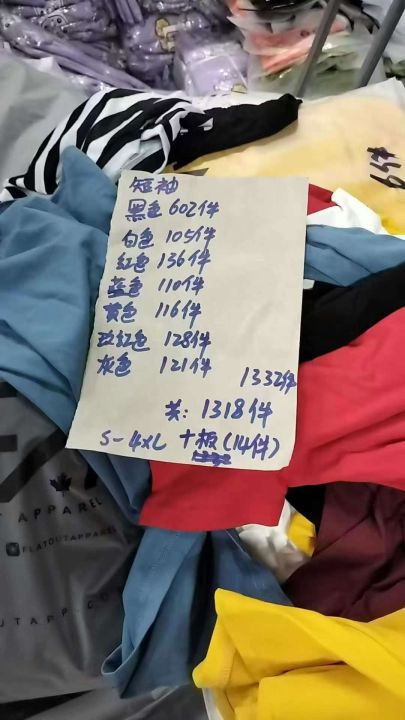 短袖
黑色 602件
白色 105件
红色 136件
蓝色 110件
黄色 116件
玫红色 128件
灰色 121件
1332件
共: 1318件
S-4XL 十板(14件)
APPAREL
FLATOUTAPPAREL